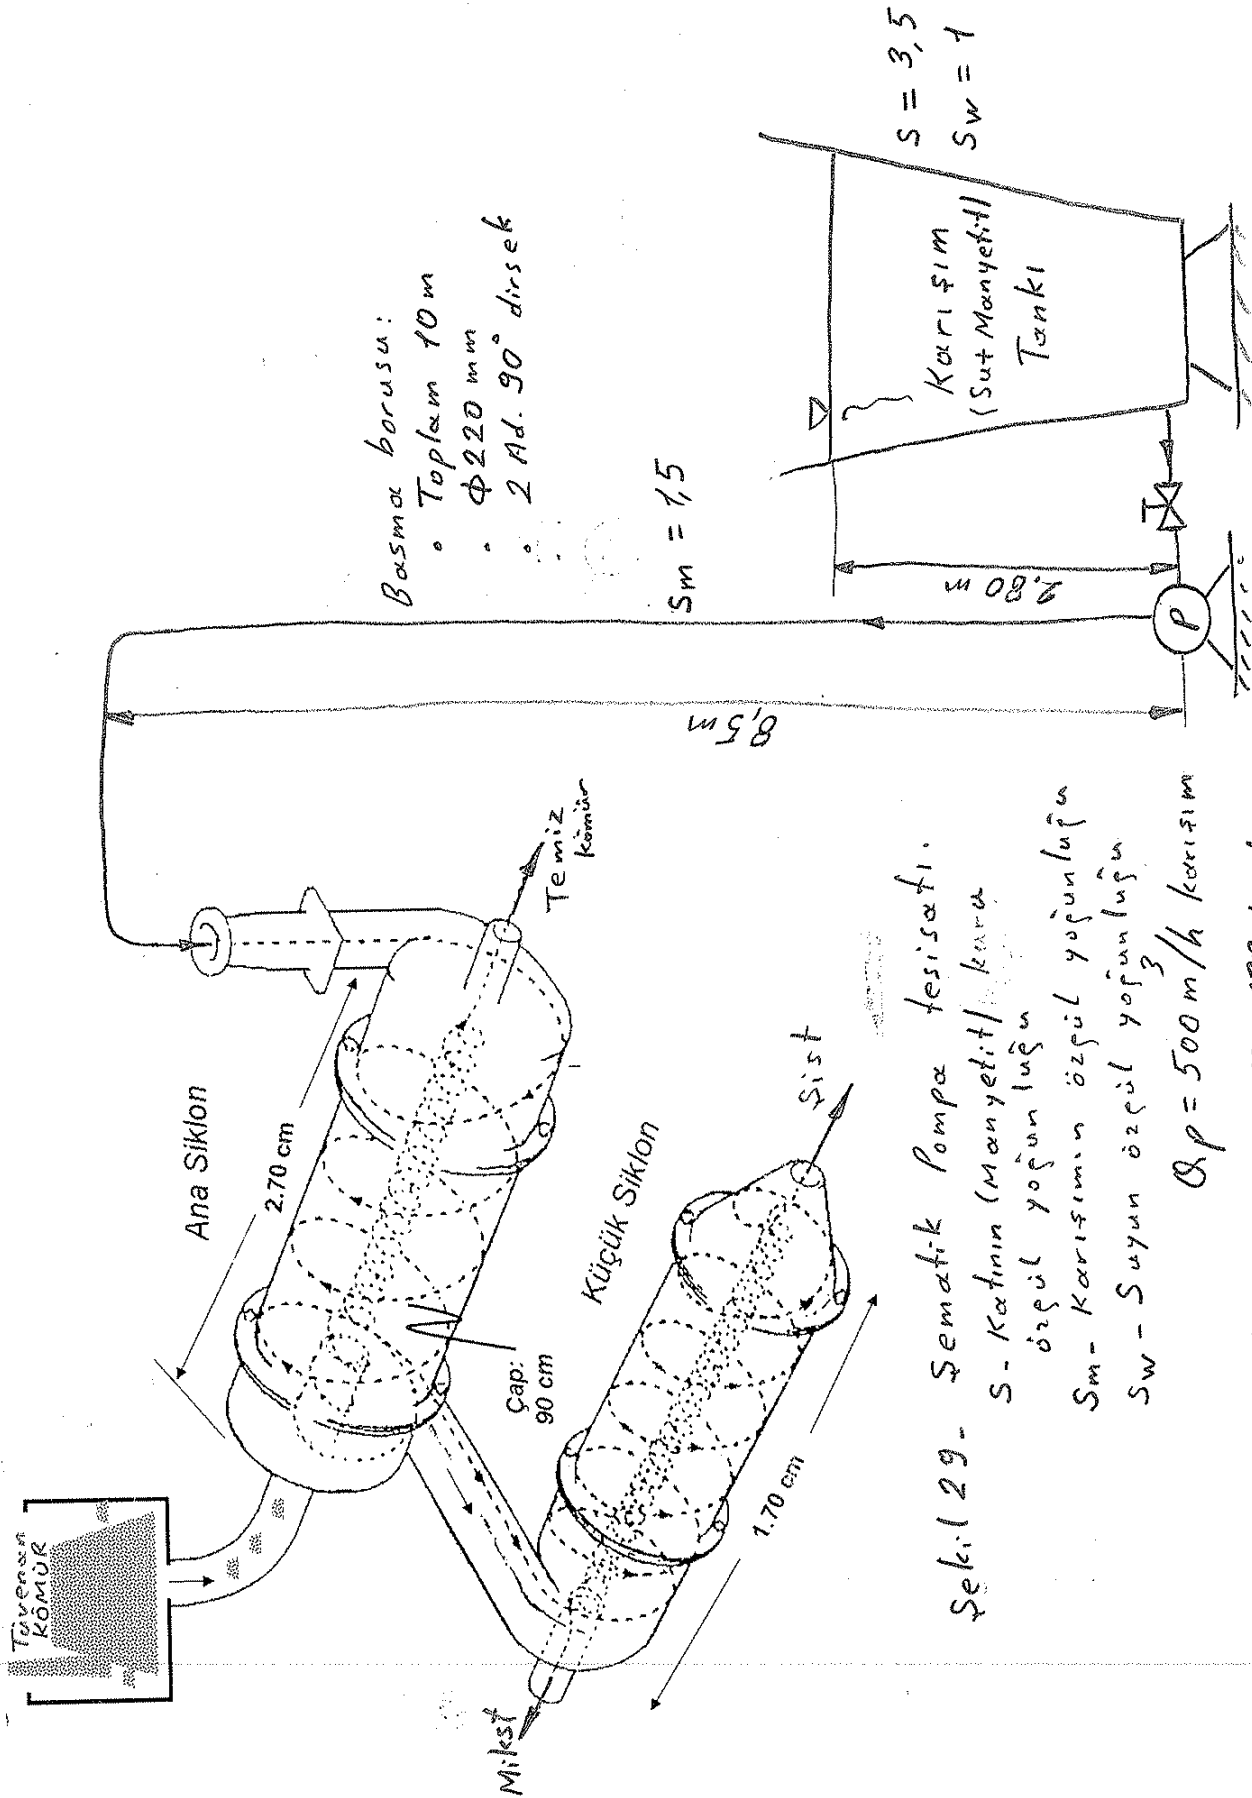 Tüvenan
KÖMÜR
Ana Siklon
2.70 cm
Çap:
90 cm
Temiz
kömür
Küçük Siklon
1.70 cm
Mikst
Şist
Basma borusu:
• Toplam 10 m
• Φ220 mm
• 2 Ad. 90° dirsek
Sm = 1,5
8,5 m
2.80 m
P
Karışım
(Sut Manyetit)
Tankı
S = 3,5
Sw = 1
Şekil 29- Şematik Pompa tesisatı.
S- Katının (Manyetit) kuru
özgül yoğunluğu
Sm- Karışımın özgül yoğunluğu
Sw- Suyun özgül yoğunluğu
Qp = 500 m³/h karışım